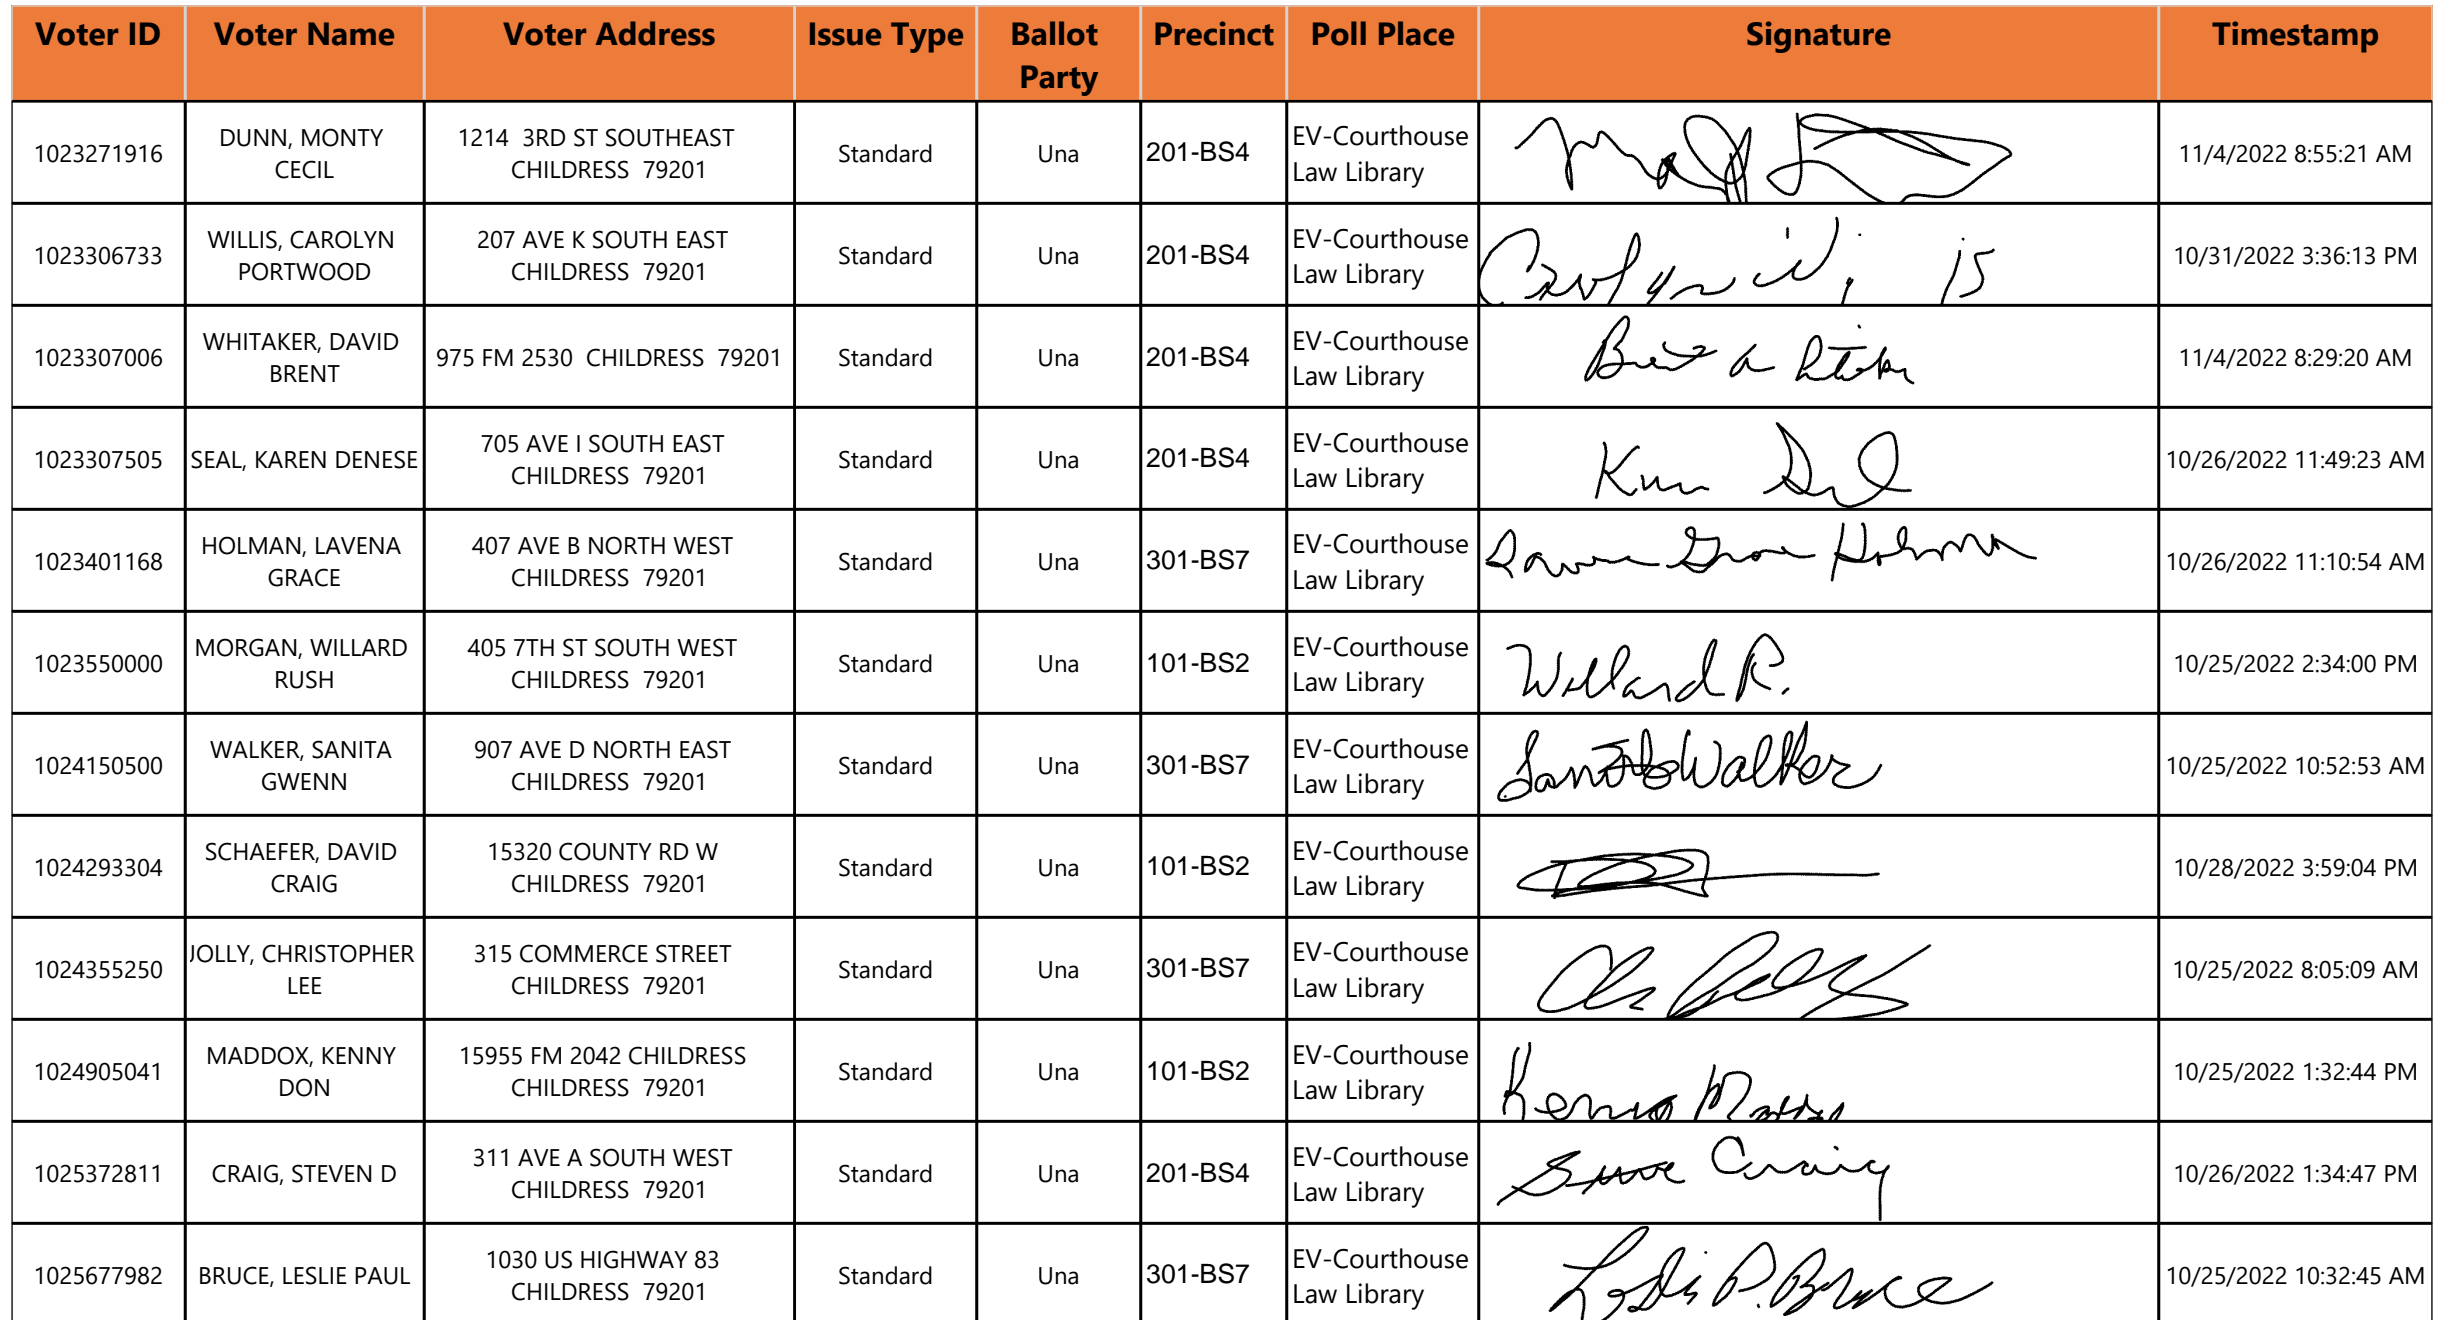 Voter ID Voter Name Voter Address Issue Type Ballot Party Precinct Poll Place Signature Timestamp
1023271916 DUNN, MONTY CECIL 1214 3RD ST SOUTHEAST CHILDRESS 79201 Standard Una 201-BS4 EV-Courthouse Law Library 11/4/2022 8:55:21 AM
1023306733 WILLIS, CAROLYN PORTWOOD 207 AVE K SOUTH EAST CHILDRESS 79201 Standard Una 201-BS4 EV-Courthouse Law Library Carolyn 10/31/2022 3:36:13 PM
1023307006 WHITAKER, DAVID BRENT 975 FM 2530 CHILDRESS 79201 Standard Una 201-BS4 EV-Courthouse Law Library 11/4/2022 8:29:20 AM
1023307505 SEAL, KAREN DENESE 705 AVE I SOUTH EAST CHILDRESS 79201 Standard Una 201-BS4 EV-Courthouse Law Library 10/26/2022 11:49:23 AM
1023401168 HOLMAN, LAVENA GRACE 407 AVE B NORTH WEST CHILDRESS 79201 Standard Una 301-BS7 EV-Courthouse Law Library Holman 10/26/2022 11:10:54 AM
1023550000 MORGAN, WILLARD RUSH 405 7TH ST SOUTH WEST CHILDRESS 79201 Standard Una 101-BS2 EV-Courthouse Law Library Willard R. 10/25/2022 2:34:00 PM
1024150500 WALKER, SANITA GWENN 907 AVE D NORTH EAST CHILDRESS 79201 Standard Una 301-BS7 EV-Courthouse Law Library Walker 10/25/2022 10:52:53 AM
1024293304 SCHAEFER, DAVID CRAIG 15320 COUNTY RD W CHILDRESS 79201 Standard Una 101-BS2 EV-Courthouse Law Library 10/28/2022 3:59:04 PM
1024355250 JOLLY, CHRISTOPHER LEE 315 COMMERCE STREET CHILDRESS 79201 Standard Una 301-BS7 EV-Courthouse Law Library 10/25/2022 8:05:09 AM
1024905041 MADDOX, KENNY DON 15955 FM 2042 CHILDRESS CHILDRESS 79201 Standard Una 101-BS2 EV-Courthouse Law Library 10/25/2022 1:32:44 PM
1025372811 CRAIG, STEVEN D 311 AVE A SOUTH WEST CHILDRESS 79201 Standard Una 201-BS4 EV-Courthouse Law Library Steve Craig 10/26/2022 1:34:47 PM
1025677982 BRUCE, LESLIE PAUL 1030 US HIGHWAY 83 CHILDRESS 79201 Standard Una 301-BS7 EV-Courthouse Law Library Leslie P. Bruce 10/25/2022 10:32:45 AM